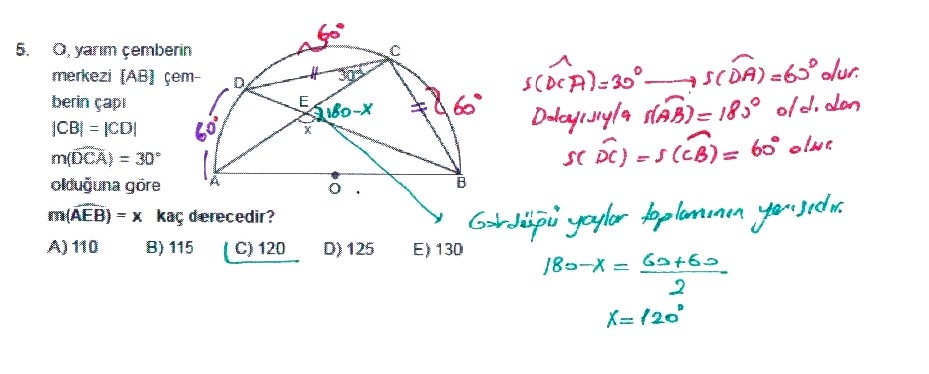 5. O, yarım çemberin
merkezi [AB] çem-
berin çapı
|CB| = |CD|
m(DCA) = 30°
olduğuna göre
m(AEB) = x kaç derecedir?
A) 110 B) 115 C) 120 D) 125 E) 130
60°
C
D
30°
E
180-x
60°
60°
x
A
O
B
s(DCA)=30° → s(DA)=60° olur.
Dolayısıyla s(AB)=180° old. dan
s(DC) = s(CB) = 60° olur.
Gördüğü yaylar toplamının yarısıdır.
180-x = 60+60
2
x=120°